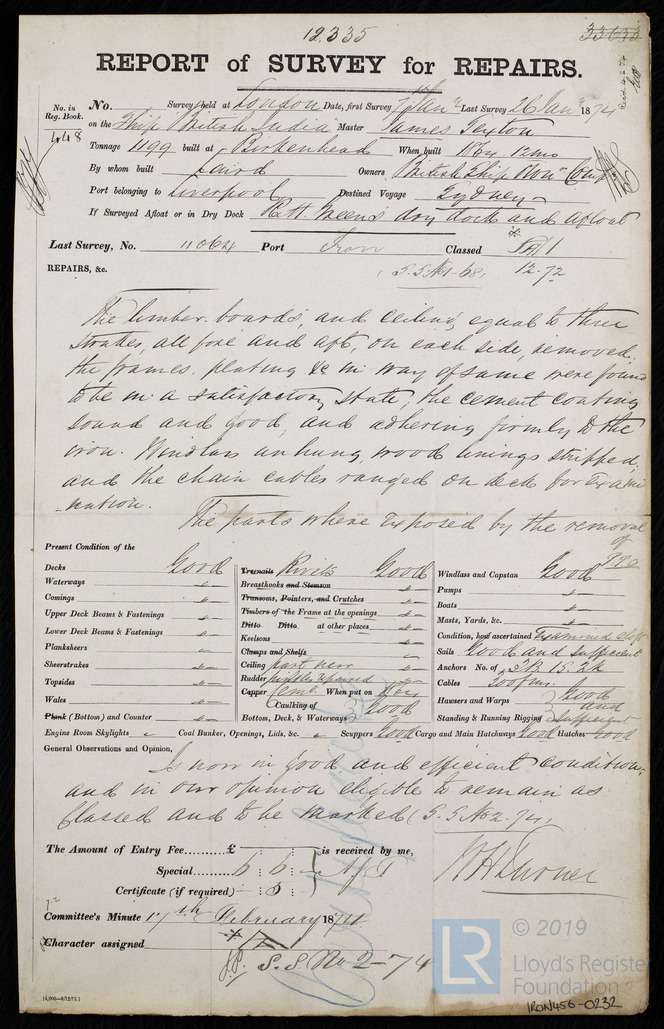 12335
33633
REPORT of SURVEY for REPAIRS.
No. in Reg. Book.
448
No. Survey held at London Date, first Survey 7 Jany Last Survey 26 Jany 1874
on the Ship British India Master James
Tonnage 1199 built at Birkenhead When built 1864. 12mo
By whom built Laird Owners British Ship Own Comp
Port belonging to Liverpool Destined Voyage Sydney
If Surveyed Afloat or in Dry Dock R & H Green's dry dock and afloat
Last Survey, No. 11064 Port Iron Classed AA1
REPAIRS, &c. S.S. No 1-68, 12.72
The limber boards, and ceiling, equal to three
strakes, all fore and aft, on each side, removed;
the frames, plating &c in way of same were found
to be in a satisfactory state, the cement coating
sound and good, and adhering firmly to the
iron. Windlass unhung, wood linings stripped,
and the chain cables ranged on deck for exami
-nation.
The parts where exposed by the removal
of
P.P.O.
Present Condition of the
Decks Good
Waterways "
Comings "
Upper Deck Beams & Fastenings "
Lower Deck Beams & Fastenings "
Planksheers "
Sheerstrakes "
Topsides "
Wales "
Plank (Bottom) and Counter "
Treenails Rivets Good
Breasthooks and Stemson "
Transoms, Pointers, and Crutches "
Timbers of the Frame at the openings "
Ditto Ditto at other places "
Keelsons "
Clamps and Shelfs "
Ceiling part new
Rudder
Copper Cemt. When put on
Caulking of
Bottom, Deck, & Waterways Good
Windlass and Capstan Good
Pumps "
Boats "
Masts, Yards, &c. "
Condition, how ascertained Examined aloft
Sails Good and sufficient
Anchors No. of 3 B. 1 S. 2 K
Cables 300 fms.
Hawsers and Warps
Standing & Running Rigging Good and Sufficient
Engine Room Skylights " Coal Bunker, Openings, Lids, &c. " Scuppers Good Cargo and Main Hatchways Good Hatches Good
General Observations and Opinion,
Is now in good and efficient condition,
and in our opinion eligible to remain as
Classed and to be marked (S.S No 2. 74)
The Amount of Entry Fee......... £ : : is received by me,
Special......... 6 : 6 : —
Certificate (if required) : 5 :
Committee's Minute 17th February 1874
Character assigned
S.S. No 2-74
[4,000—6/12/72.]
LR
© 2019
Lloyd's Register
Foundation
IRON456-0232